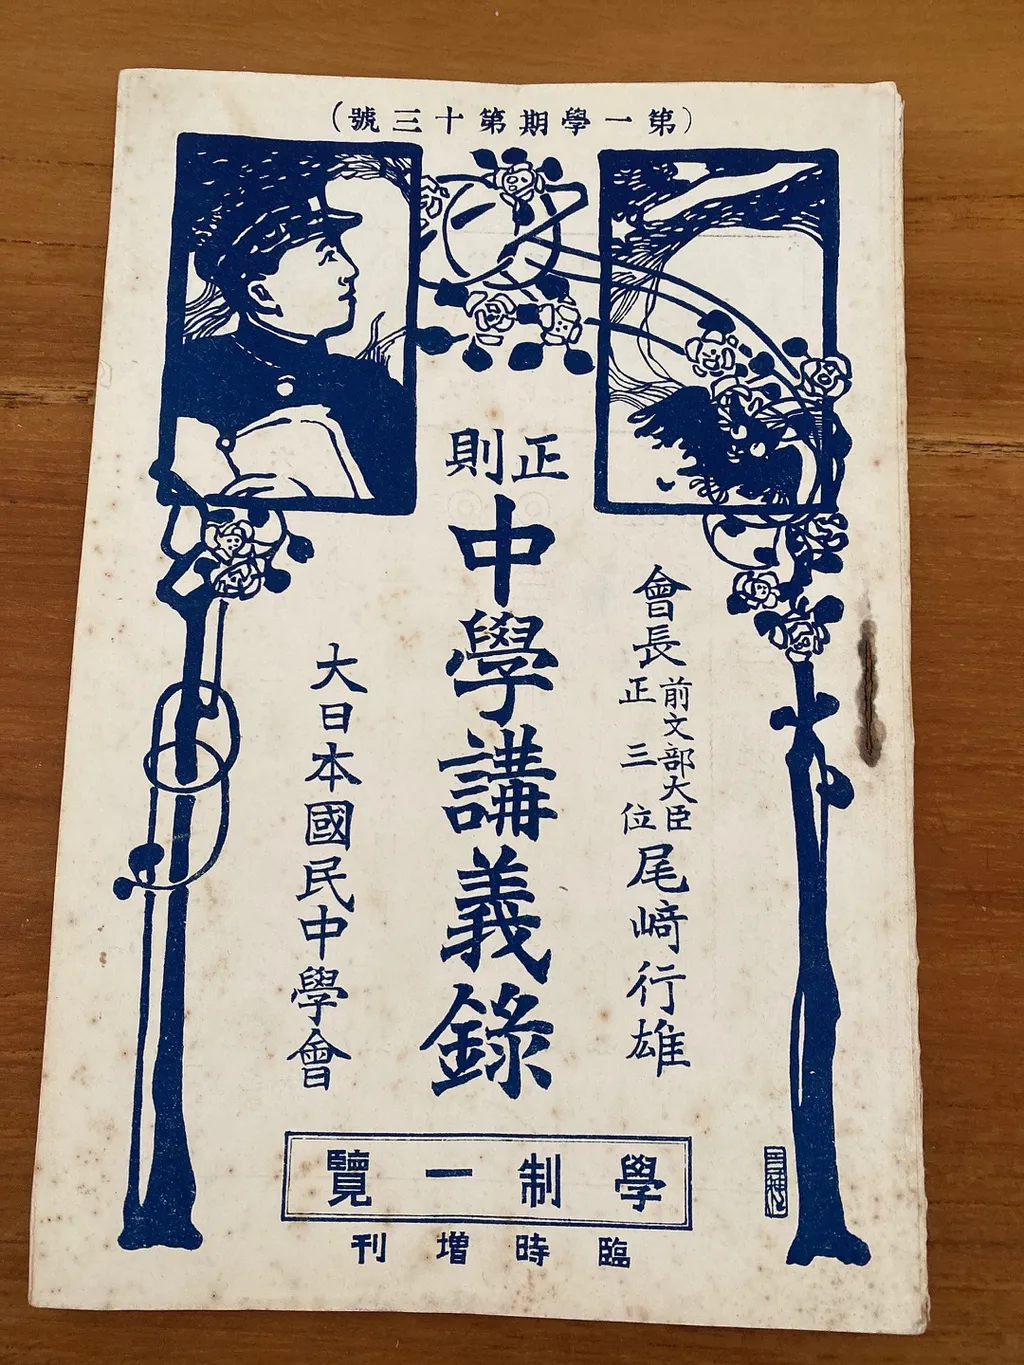 (第一學期第十三號)
正則
中學講義錄
會長 前文部大臣 正三位 尾﨑行雄
大日本國民中學會
學制一覽
臨時增刊